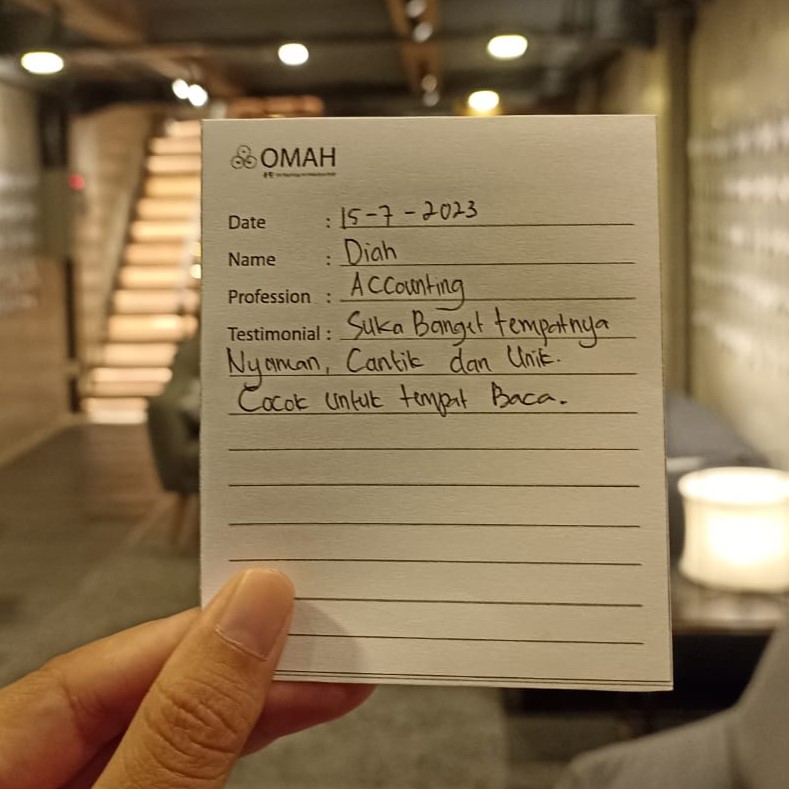 OMAH
Date : 15-7-2023
Name : Diah
Profession : Accounting
Testimonial : Suka Banget tempatnya
Nyaman, Cantik dan Unik.
Cocok untuk tempat Baca.